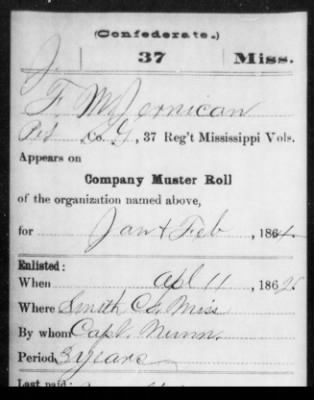 (Confederate.)
J. 37 Miss.
F. M. Jernican
Pvt Co. G, 37 Reg't Mississippi Vols.
Appears on
Company Muster Roll
of the organization named above,
for Jan & Feb, 1864.
Enlisted:
When Apl 11, 1862
Where Smith Co. Miss
By whom Capt. Nunn.
Period 3 years
Last paid: